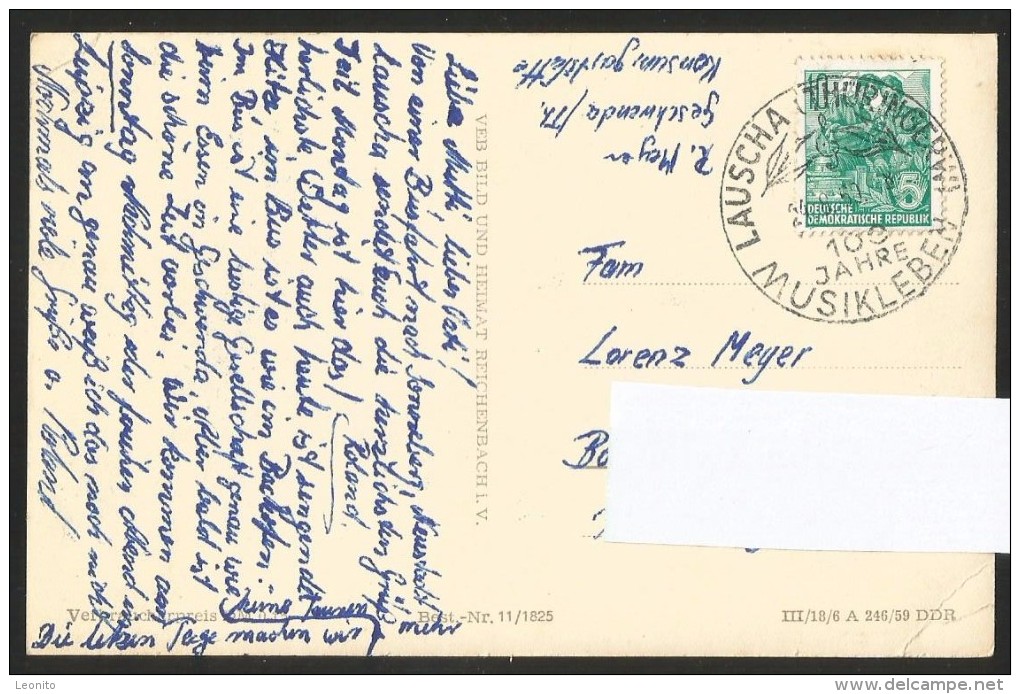 Liebe Mutti, lieber Vati!
Von einer Busfahrt nach Sonneburg, Neustadt
Lauscha sendet Euch die herzlichsten Grüße
Seit Montag ist hier das Roland.
herlichste Wetter auch heute ist sengende
Hitze im Bus ist es wie im Backofen.
Im Bus ist eine lustige Gesellschaft genau wie
beim Essen in Geschwenda. Aber bald ist
die schöne Zeit vorbei. Wir kommen am
Sonntag Nachmittag oder frühen Abend in
Leipzig an genau weiß ich das noch nicht
Nochmals viele Grüße
Die letzten Tage machen wir
keine Touren mehr
VEB BILD UND HEIMAT REICHENBACH i. V.
R. Meyer
Geschwenda /Th.
Konsumgaststätte
10
5
DEUTSCHE
DEMOKRATISCHE REPUBLIK
LAUSCHA (THÜRINGER WALD)
100
JAHRE
MUSIKLEBEN
Fam
Lorenz Meyer
Verbraucherpreis
Best.-Nr. 11/1825
III/18/6 A 246/59 DDR
Leonito
delcampe.net